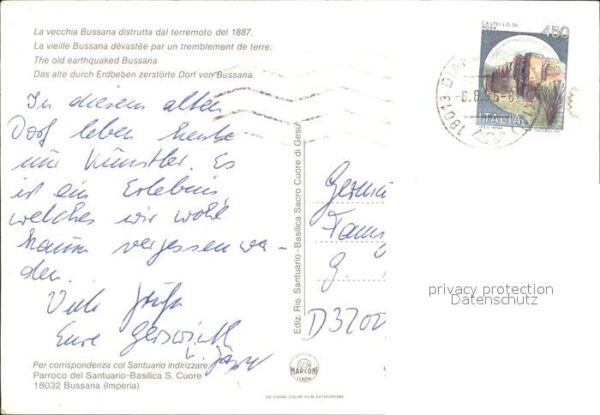 La vecchia Bussana distrutta dal terremoto del 1887.
La vieille Bussana dévastée par un tremblement de terre.
The old earthquaked Bussana
Das alte durch Erdbeben zerstörte Dorf von Bussana.
In diesem alten
Dorf leben heute
nur Künstler. Es
ist ein Erlebnis,
welches wir wohl
kaum vergessen wer-
den.
Viele Grüße
Eure
Per corrispondenza col Santuario indirizzare:
Parroco del Santuario-Basilica S. Cuore
18032 Bussana (Imperia)
Ediz. Ris. Santuario-Basilica Sacro Cuore di Gesù
MARCONI
CASTELLO DI
450
ITALIA
D3200
privacy protection
Datenschutz